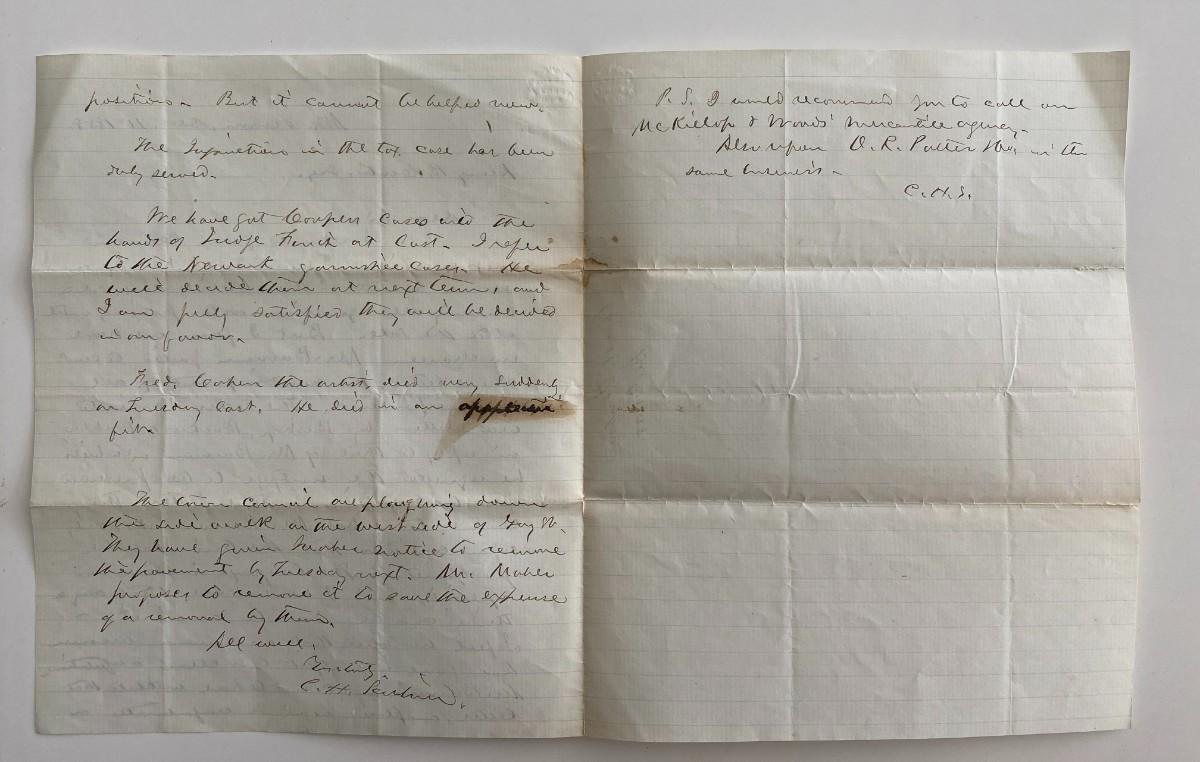 position. But it cannot be helped now.
The Injunction in the tax case has been
duly served.
We have got Cowpers cases into the
hands of Judge Finch at last. I refer
to the Newark garnishee cases. He
will decide them at next term, and
I am fully satisfied they will be decided
in our favor.
Fred. Cohen the artist, died very sudden
on Tuesday last. He died in an
fit.
The town council are ploughing down
the side walk on the west side of Gay St.
They have given notice to remove
the pavement by Tuesday next. Mr. Maher
proposes to remove it to save the expense
of a removal by them.
All well,
Yrs truly
C. H.
P. S. I would recommend you to call on
McKillop & Woods' Mercantile agency.
Also upon O. R. Potter in the
same business.
C. H. S.